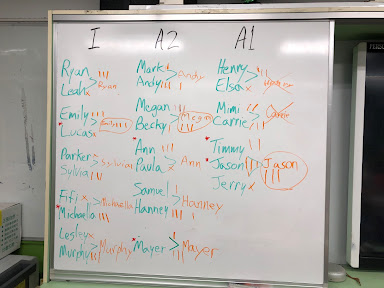 I
Ryan
Leah x
Ryan
Emily
Lucas x
Emily
Parker
Sylvia
Sylvia
Fifi x
Michaello
Michaello
Lesley x
Murphy
Murphy
A2
Mark
Andy
Andy
Megan
Becky
Megan
Ann
Paula x
Ann
Samuel
Hanney
Hanney
Mayer
Mayer
A1
Henry
Elsa x
Mimi
Carrie
Carrie
Timmy
Jason
Jerry x
Jason